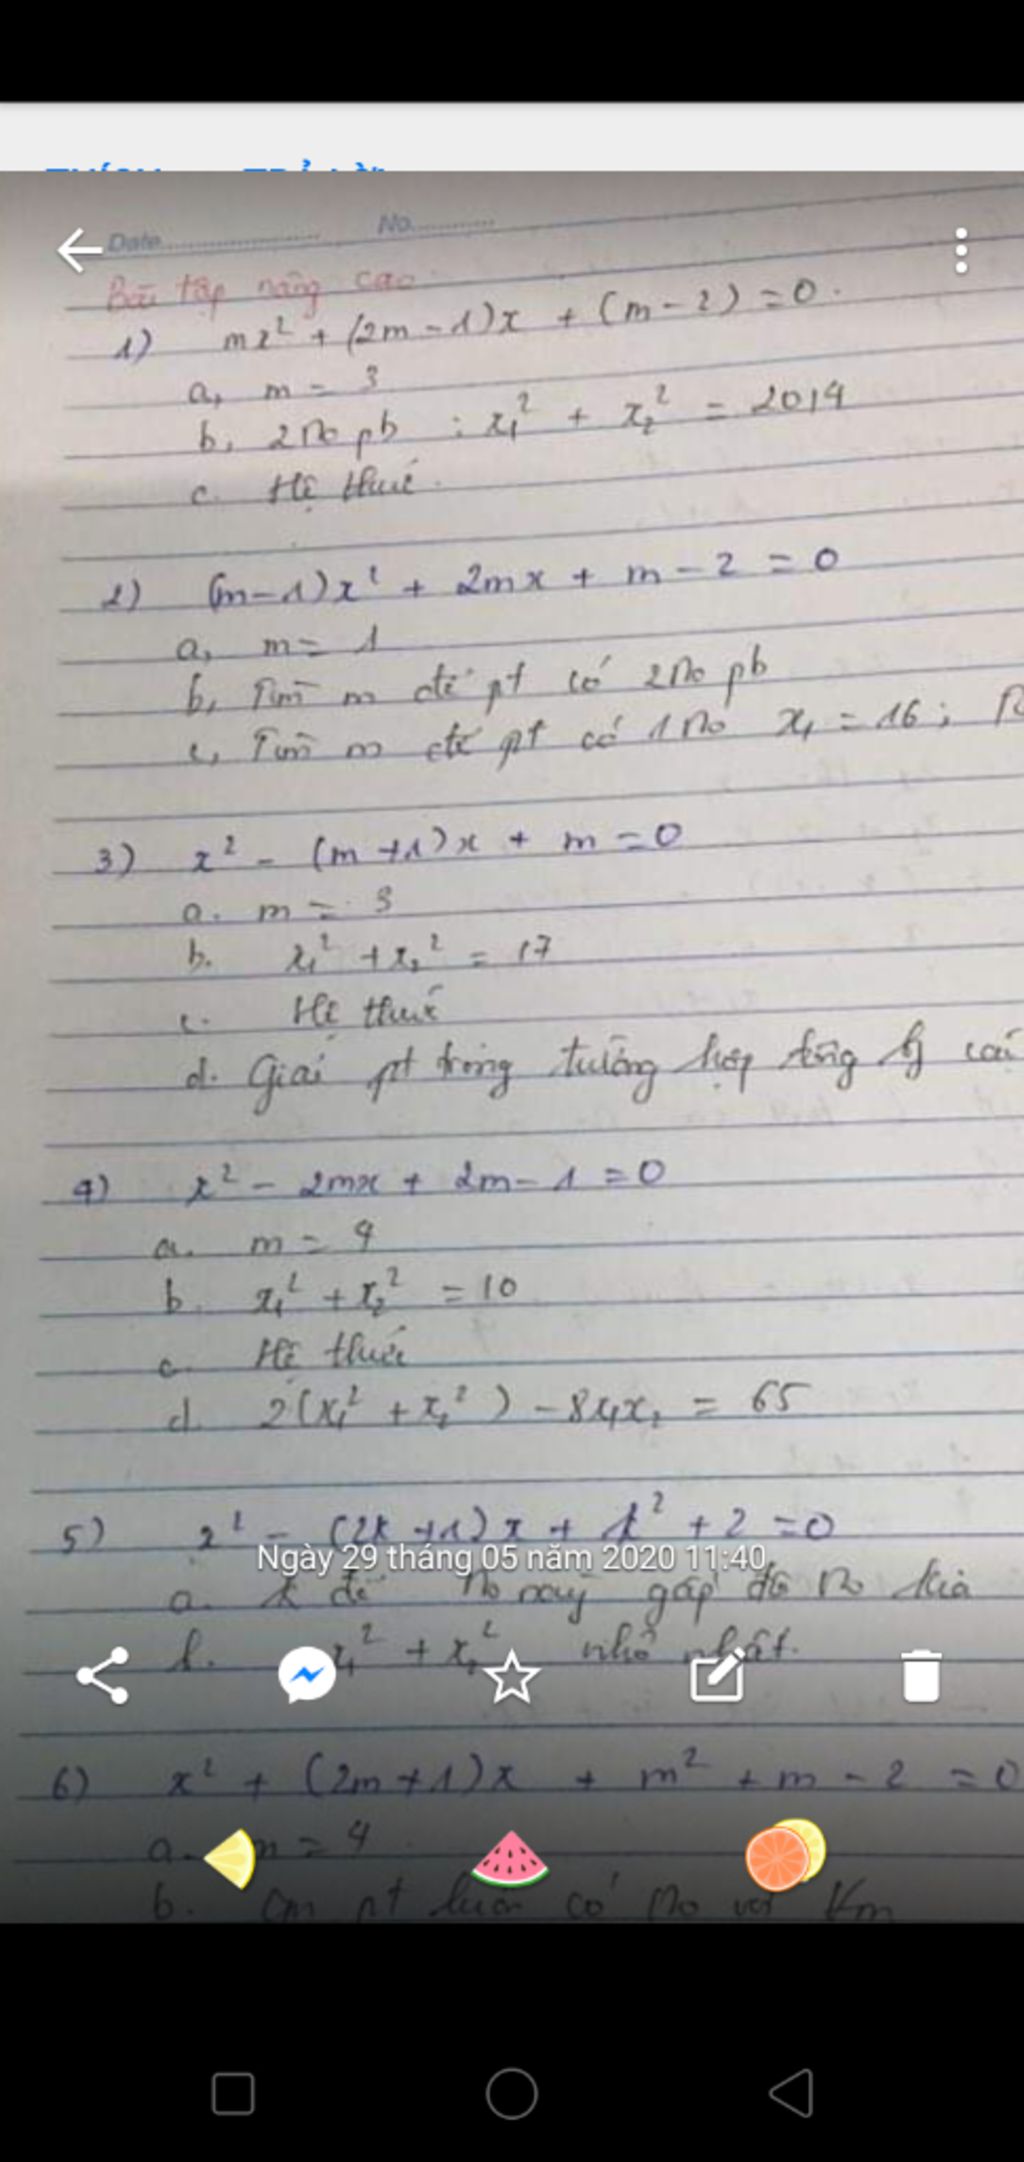 Date No.
Bài tập nâng cao
1) mx² + (2m - 1)x + (m - 2) = 0.
a, m = 3
b, 2 No pb : x₁² + x₂² = 2014
c. Hệ thức.
2) (m - 1)x² + 2mx + m - 2 = 0
a, m = 1
b, Tìm m để pt có 2 No pb
c, Tìm m để pt có 1 No x₁ = 16;
3) x² - (m + 1)x + m = 0
a. m = 3
b. x₁² + x₂² = 17
c. Hệ thức
d. Giải pt trong trường hợp
4) x² - 2mx + 2m - 1 = 0
a. m = 4
b. x₁² + x₂² = 10
c. Hệ thức
d. 2(x₁² + x₂²) - 8x₁x₂ = 65
5) x² - (2k + 1)x + k² + 2 = 0
Ngày 29 tháng 05 năm 2020 11:40
a. k để No này gấp đôi No kia
b. x₁² + x₂² nhỏ nhất.
6) x² + (2m + 1)x + m² + m - 2 = 0
a. m = 4
b. Cm pt luôn có No với ∀m